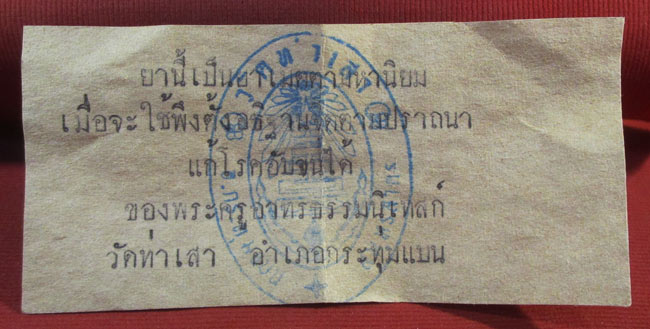 ยานี้เป็นยาเมตตามหานิยม
เมื่อจะใช้พึงตั้งอธิษฐานจิตตามปราถนา
แก้โรคอับจนได้
ของพระครูอาทรธรรมนิเทสก์
วัดท่าเสา อำเภอกระทุ่มแบน